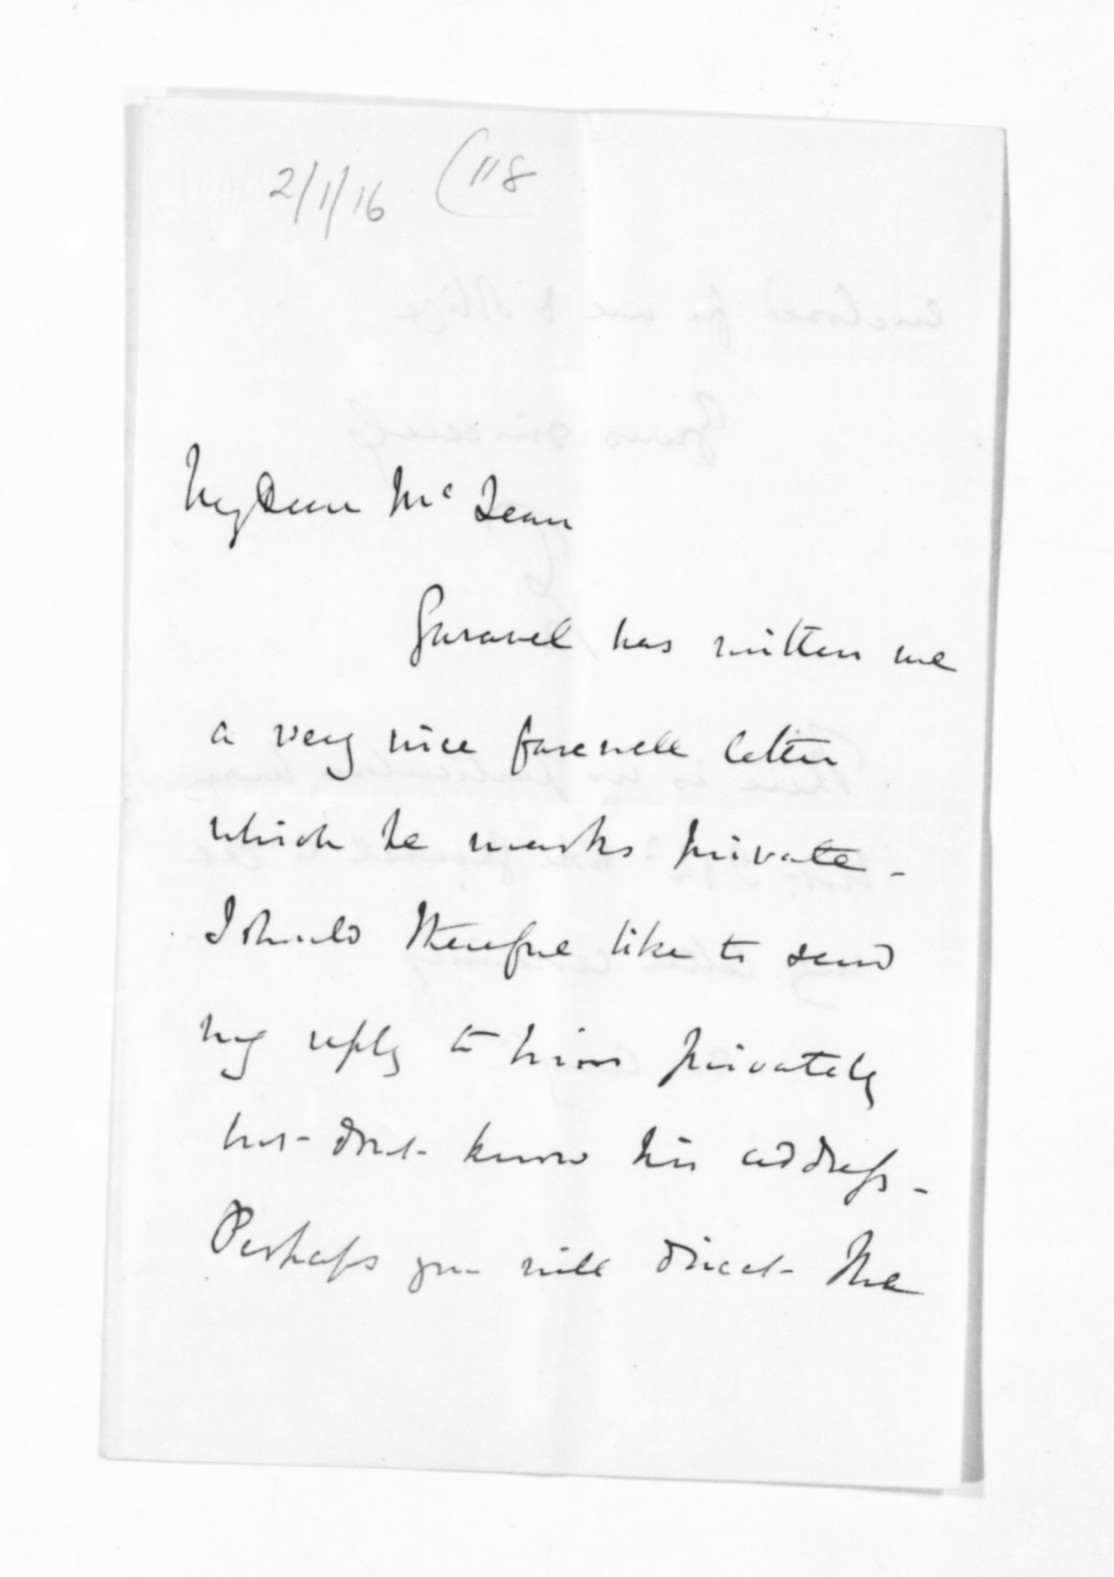 2/1/16 (118
My Dear McLean
has written me
a very nice farewell letter
which he marks private -
I should therefore like to send
my reply to him privately
but dont know his address -
Perhaps you will direct the